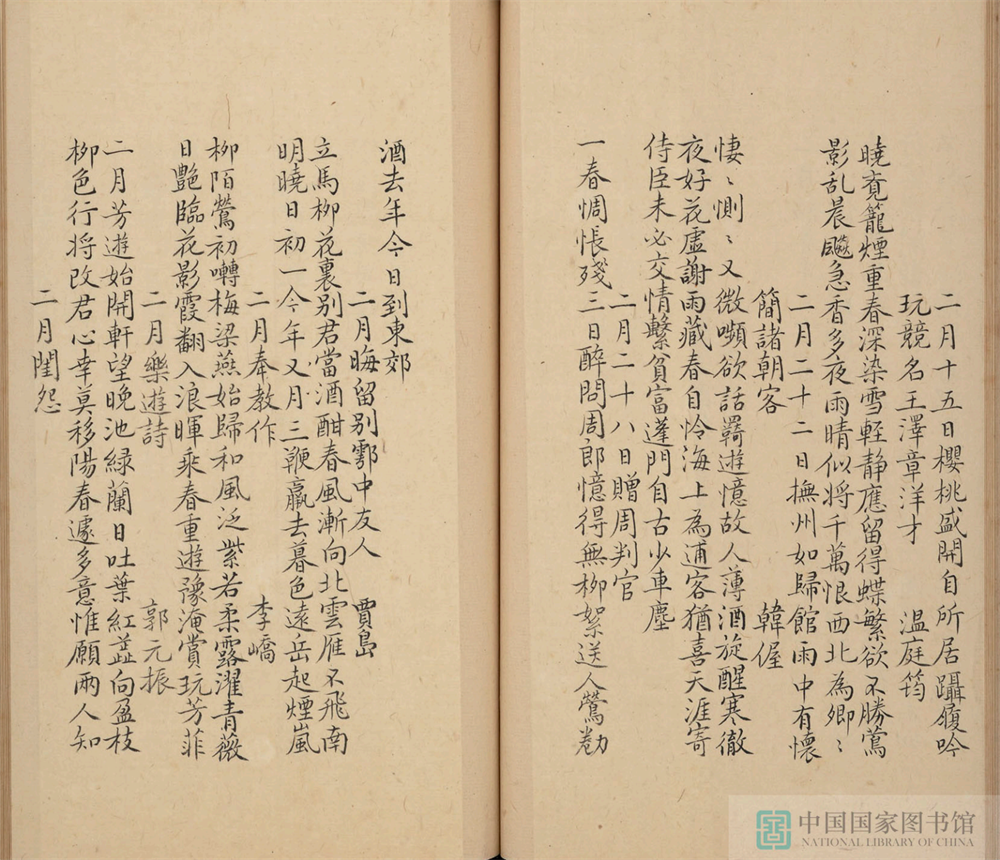 二月十五日櫻桃盛開自所居躡履吟
玩競名王澤章洋才　溫庭筠
曉覔籠煙重春深染雪軽静應留得蝶繁欲不勝鶯
影乱晨飈急香多夜雨晴似將千萬恨西北為卿〻
二月二十二日撫州如歸館雨中有懷
簡諸朝客　韓偓
悽〻惻〻又微嚬欲話羇遊憶故人薄酒旋醒寒徹
夜好花虛謝雨藏春自怜海上為逋客猶喜天涯寄
侍臣未必交情繫貧富蓬門自古少車塵
二月二十八日贈周判官
一春惆悵殘三日醉問周郎憶得無柳絮送人鶯勸
酒去年今日到東郊
二月晦留別鄠中友人　賈島
立馬柳花裏別君當酒酣春風漸向北雲雁不飛南
明曉日初一今年又月三鞭羸去暮色遠岳起煙嵐
二月奉教作　李嶠
柳陌鶯初囀梅梁燕始歸和風泛紫若柔露濯青薇
日艷臨花影霞翻入浪暉乘春重遊豫淹賞玩芳菲
二月樂遊詩　郭元振
二月芳遊始開軒望晚池緑蘭日吐葉紅蕋向盈枝
柳色行將改君心幸莫移陽春遽多意惟願兩人知
二月閨怨
中国国家图书馆
NATIONAL LIBRARY OF CHINA